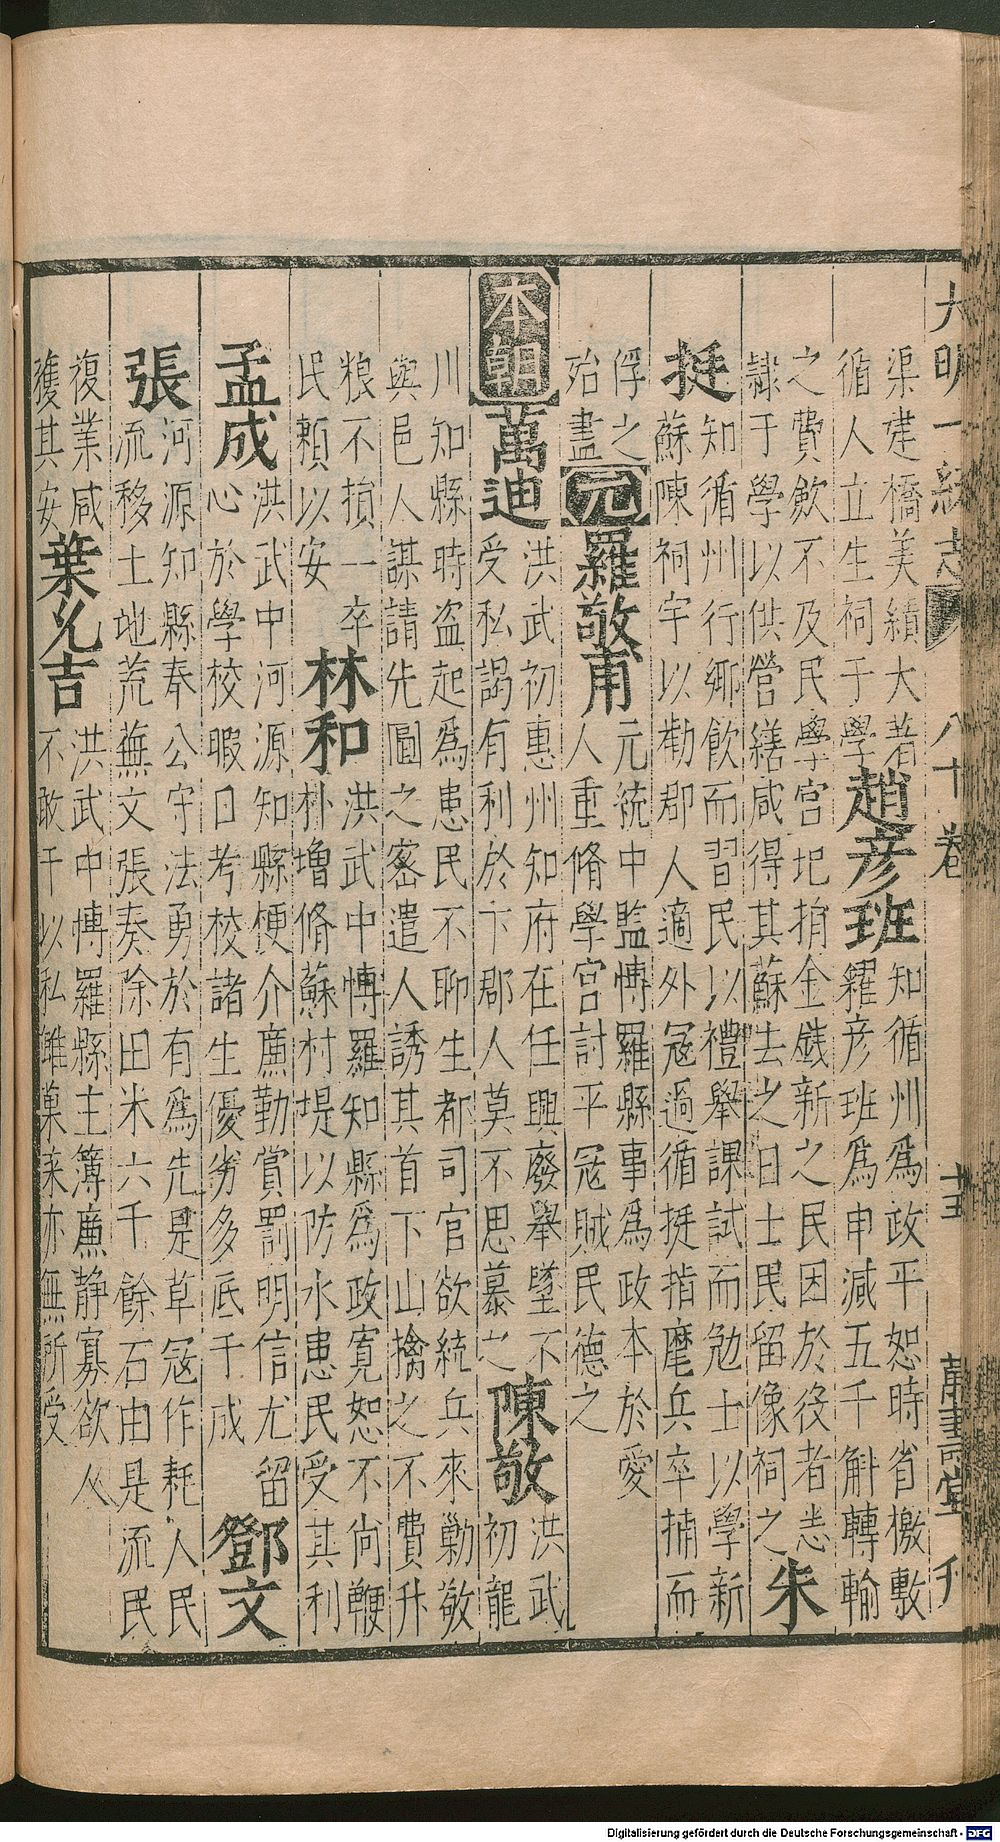 大明一統志 八十卷 十五 萬壽堂刊
渠建橋美績大著
循人立生祠于學
趙彦班
知循州爲政平恕時省檄敷
糴彦班爲申減五千斛轉輸
之費飲不及民學宮圯捐金新之民因於役者悉
隷于學以供營繕咸得其蘇去之日士民留像祠之
朱
挺
知循州行鄉飲而習民以禮舉課試而勉士以學新
蘇陳祠宇以勸郡人適外冦過循挺指麾兵卒捕而
俘之
殆盡
元
羅敬甫
元統中監愽羅縣事爲政本於愛
人重脩學宮討平冦賊民德之
本朝
萬迪
洪武初惠州知府在任興廢舉墜不
受私謁有利於下郡人莫不思慕之
陳敬
洪武
初龍
川知縣時盗起爲患民不聊生都司官欲統兵來勦敬
與邑人謀請先圖之密遣人誘其首下山擒之不費升
粮不損一卒
民頼以安
林和
洪武中愽羅知縣爲政寛恕不尚鞭
朴增脩蘇村堤以防水患民受其利
孟成
洪武中河源知縣梗介亷勤賞罰明信尤留
心於學校暇日考校諸生優劣多底于成
鄧文
張
河源知縣奉公守法勇於有爲先是草冦作耗人民
流移土地荒蕪文張奏除田米六千餘石由是流民
復業咸
獲其安
葉允吉
洪武中愽羅縣主簿亷静寡欲人
不敢干以私雖菓菜亦無所受
Digitalisierung gefördert durch die Deutsche Forschungsgemeinschaft - DFG